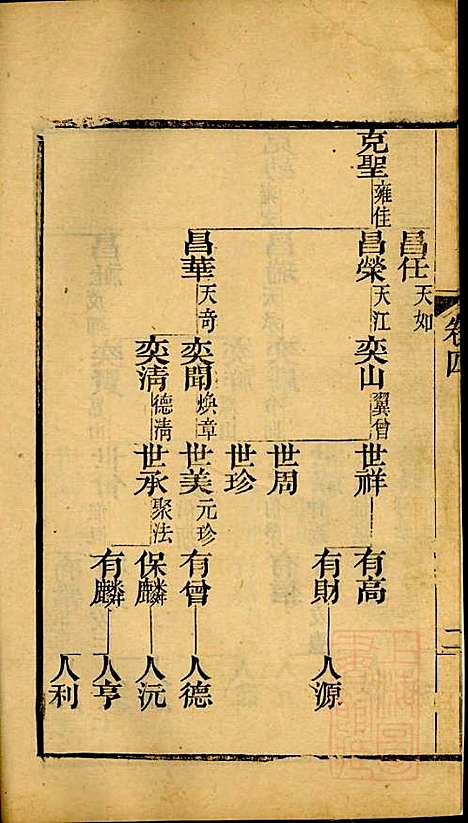 卷四
二
昌任 天如
克聖 雍佳
昌榮 天江
奕山 翼曾
世祥
有高
有財
人源
世周
世珍
昌華 天奇
奕聞 煥章
世美 元珍
有曾
人德
奕清 德淸
世承 聚法
保麟
人沅
有麟
人亨
人利